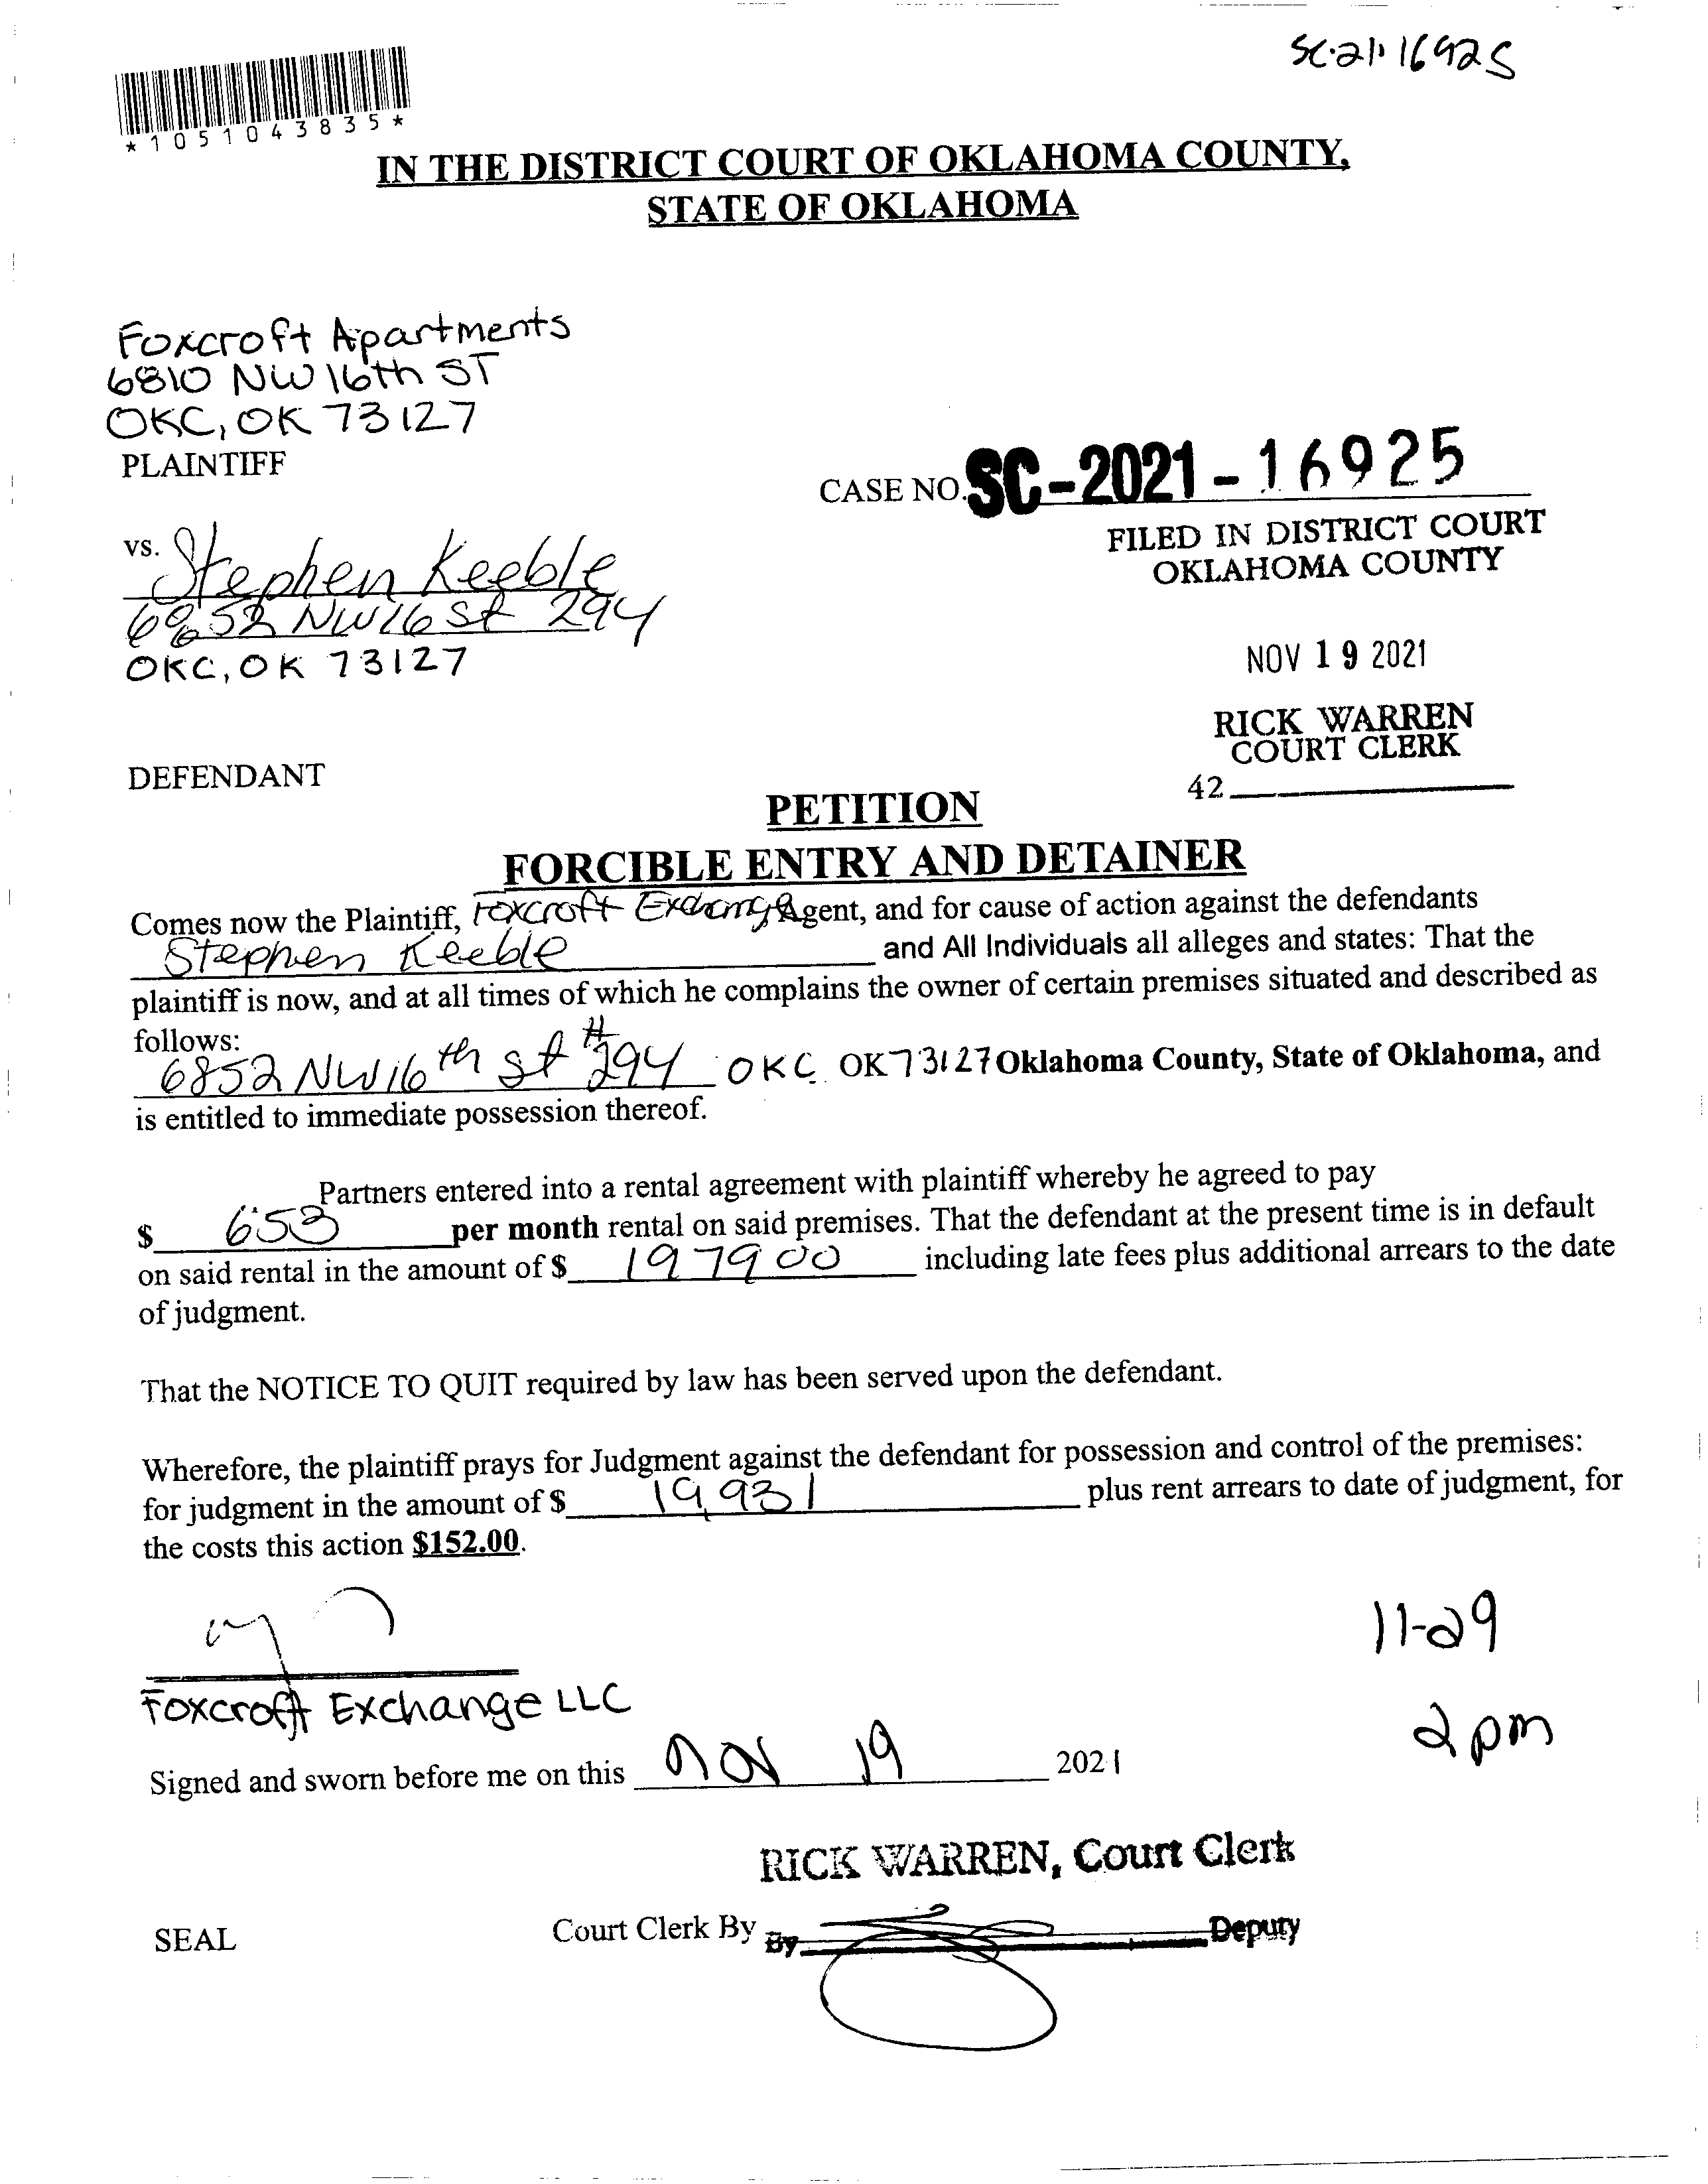 SC-21-16925
*1051043835*
IN THE DISTRICT COURT OF OKLAHOMA COUNTY,
STATE OF OKLAHOMA
Foxcroft Apartments
6810 NW 16th ST
OKC, OK 73127
PLAINTIFF
CASE NO. SC-2021-16925
FILED IN DISTRICT COURT
OKLAHOMA COUNTY
vs. Stephen Keeble
6852 NW 16 St 294
OKC, OK 73127
NOV 19 2021
RICK WARREN
COURT CLERK
42
DEFENDANT
PETITION
FORCIBLE ENTRY AND DETAINER
Comes now the Plaintiff, Foxcroft Exchange Agent, and for cause of action against the defendants
Stephen Keeble and All Individuals all alleges and states: That the
plaintiff is now, and at all times of which he complains the owner of certain premises situated and described as
follows:
6852 NW 16th St #294 OKC OK 73127 Oklahoma County, State of Oklahoma, and
is entitled to immediate possession thereof.
Partners entered into a rental agreement with plaintiff whereby he agreed to pay
$ 653 per month rental on said premises. That the defendant at the present time is in default
on said rental in the amount of $ 197900 including late fees plus additional arrears to the date
of judgment.
That the NOTICE TO QUIT required by law has been served upon the defendant.
Wherefore, the plaintiff prays for Judgment against the defendant for possession and control of the premises:
for judgment in the amount of $ 19,931 plus rent arrears to date of judgment, for
the costs this action $152.00.
11-29
2 pm
Foxcroft Exchange LLC
Signed and sworn before me on this Nov 19 2021
RICK WARREN, Court Clerk
SEAL
Court Clerk By By Deputy